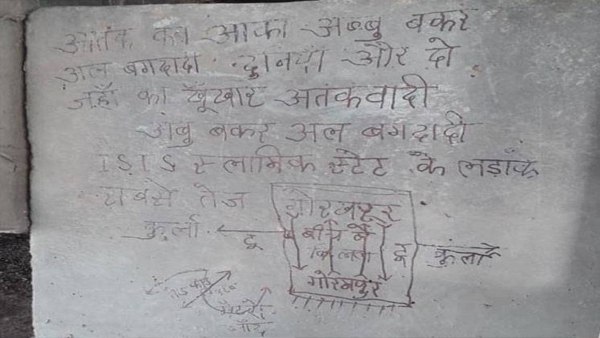 आतंक का आका अब्बु बकर
अल बगदादी. दुनदा और दो
जहाँ का खूंखार अतंकवादी
अबु बकर अल बगदादी
ISIS स्लामिक स्टेट के लड़ाकू
सबसे तेज
गोरखपुर
कुर्ला टू
बीच में
टू कुर्ला
गोरखपुर